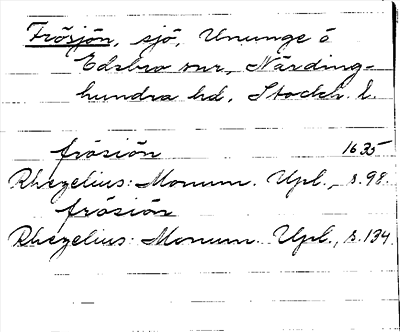 Frösjön, sjö, Ununge o
Edsbro snr, Närding-
hundra hd, Stockh. l.
frösiön 1635
Rhezelius: Monum. Upl., s. 98.
frösiön
Rhezelius: Monum. Upl., s. 134.